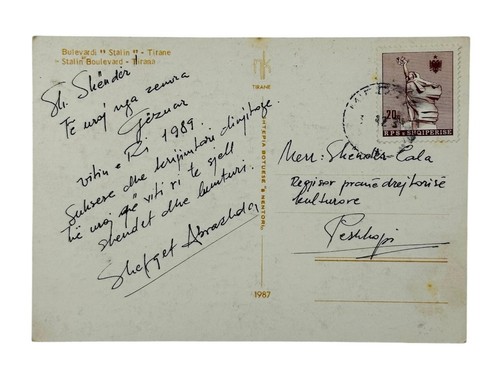 Bulevardi "Stalin" - Tirane
- Stalin Boulevard - Tirana
TIRANE
Sh. Skënder!
Të uroj nga zemra
Gëzuar
vitin e Ri 1989.
Suksese dhe krijimtari
të uroj që viti ri të sjell
shendet dhe hunturi.
Shefqet Abrazhda
SHTEPIA BOTUESE "8 NENTORI"
1987
20q
RPS e SHQIPERISE
Merr: Skënder Cala
Regjisor pranë drejtorisë
kulturore
Peshkopi